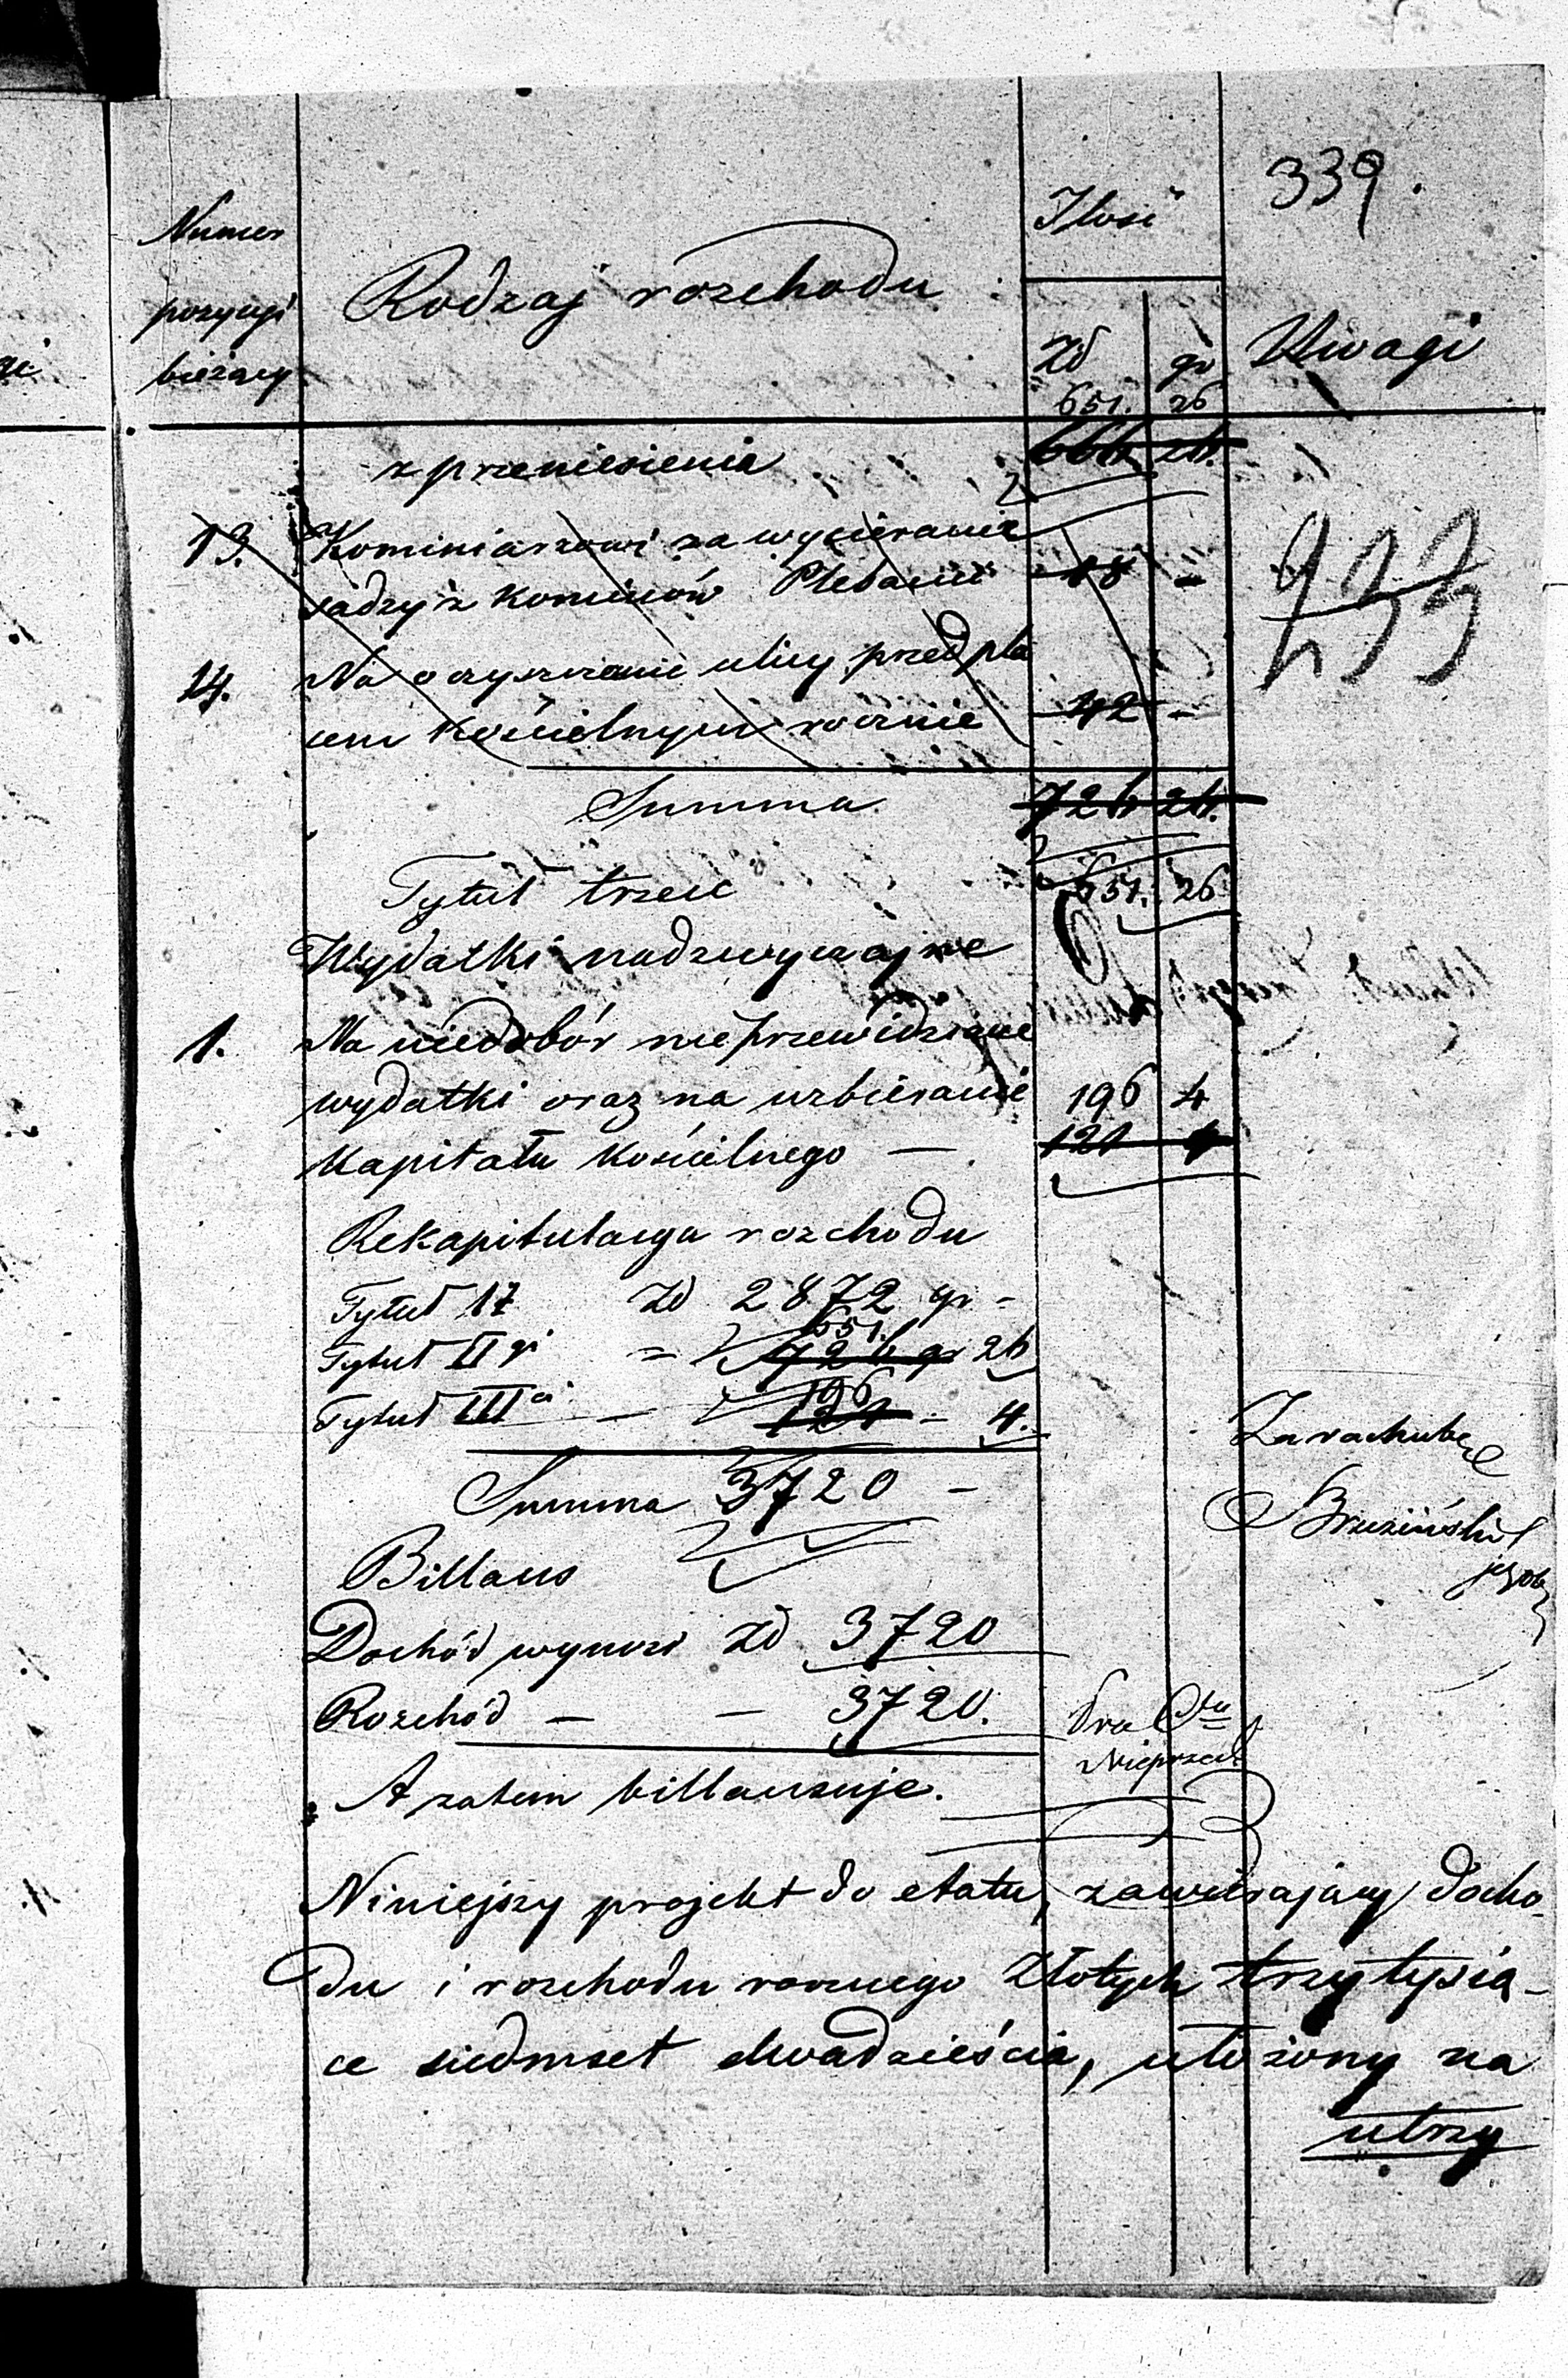 339.
Numer
pozycyi
bieżący
Rodzaj rozchodu
Ilość
Zł
gr
Uwagi
651. 26
z przeniesienia 666 26.
233
13. Kominiarzowi za wycieranie
sadzy z kominów Plebanii 18 -
14. Na oczyszczanie ulicy przed pla
cem Kościelnym rocznie 42 -
Summa 726 26.
651. 26
Tytuł trzeci
Wydatki nadzwyczajne
1. Na niedobór nieprzewidziane
wydatki oraz na uzbieranie 196 4
Kapitału Kościelnego — 121 4
Rekapitulacya rozchodu
Tytuł I Zł 2872 gr -
651.
Tytuł II gi = 726 gr 26
196
Tytuł III ci — 121 - 4.
Summa 3720 -
Zarachube
Brzeziński
Billans
Dochód wynosi Zł 3720
Rozchód — — 3720.
A zatem billansuje.
Niniejszy projekt do etatu, zawierający docho-
du i rozchodu rocznego Złotych trzy tysią-
ce siedmset dwadzieścia, ułożony na
utrzy